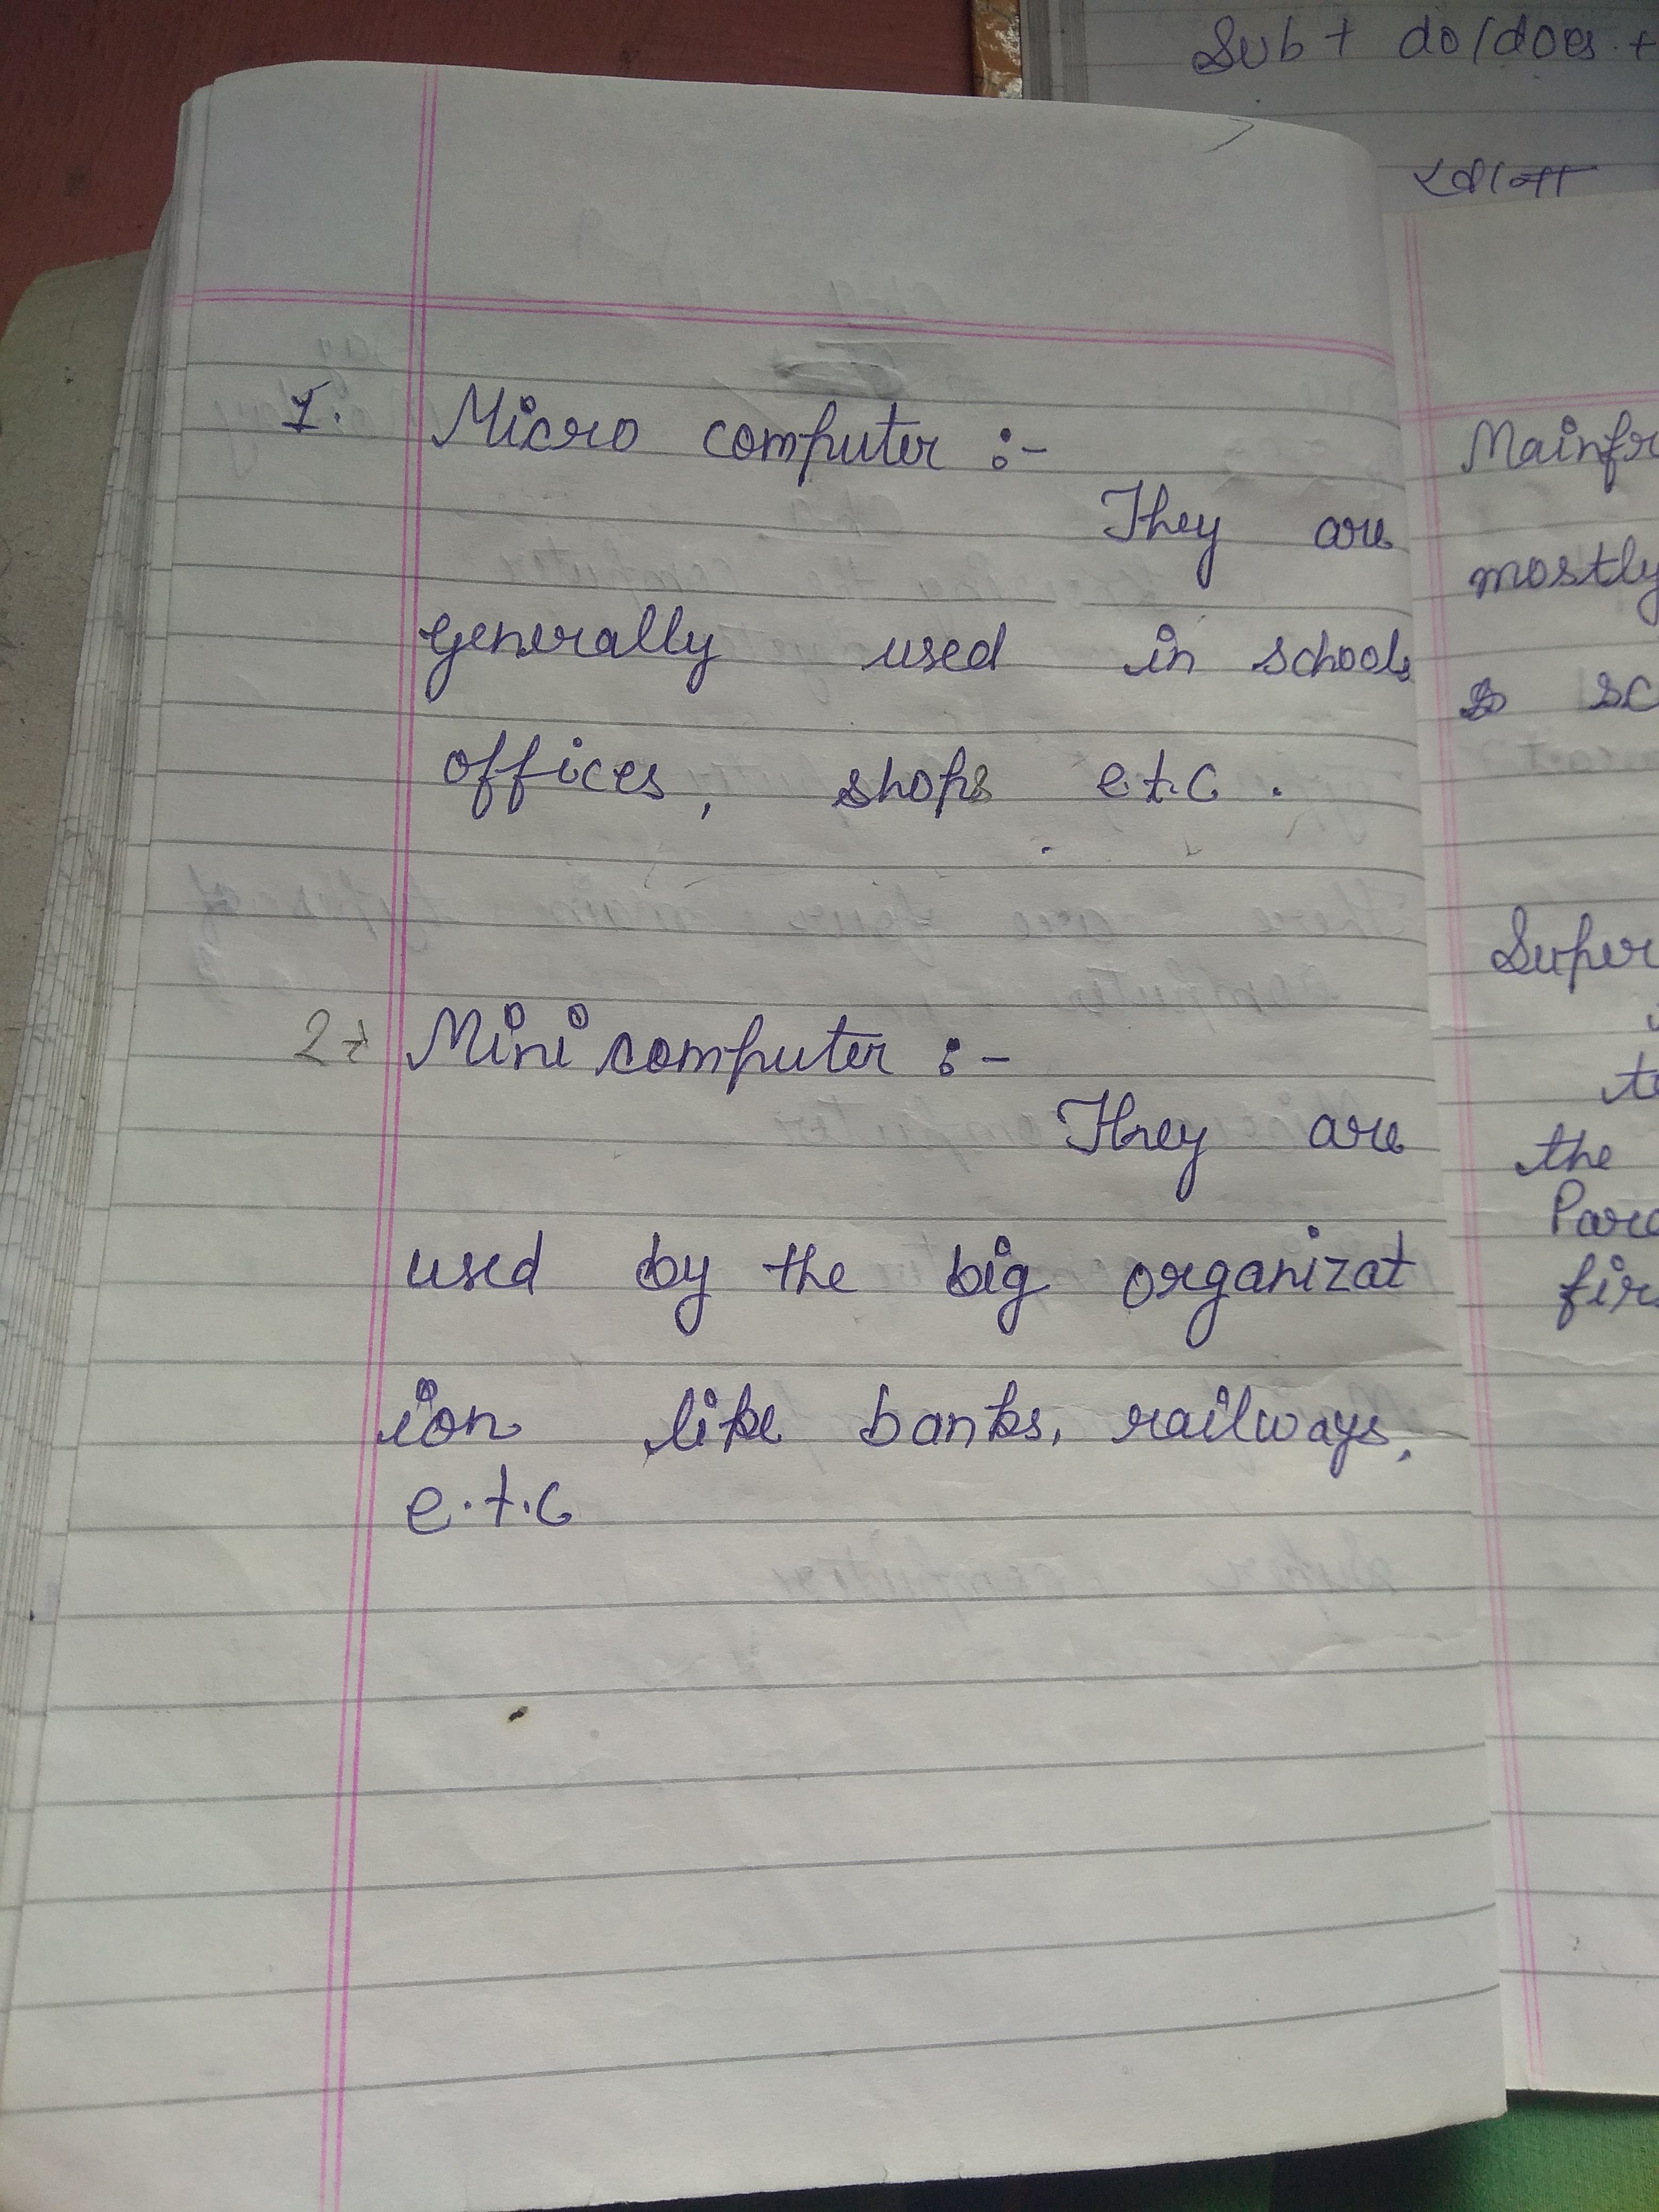 Sub + do/does +
खाना
1. Micro computer :-
They are
generally used in schools
offices, shops e.t.c .
2. Mini computer :-
They are
used by the big organizat
ion like banks, railways,
e.t.c
Mainfr
mostly
sc
Super
te
the
Para
firs